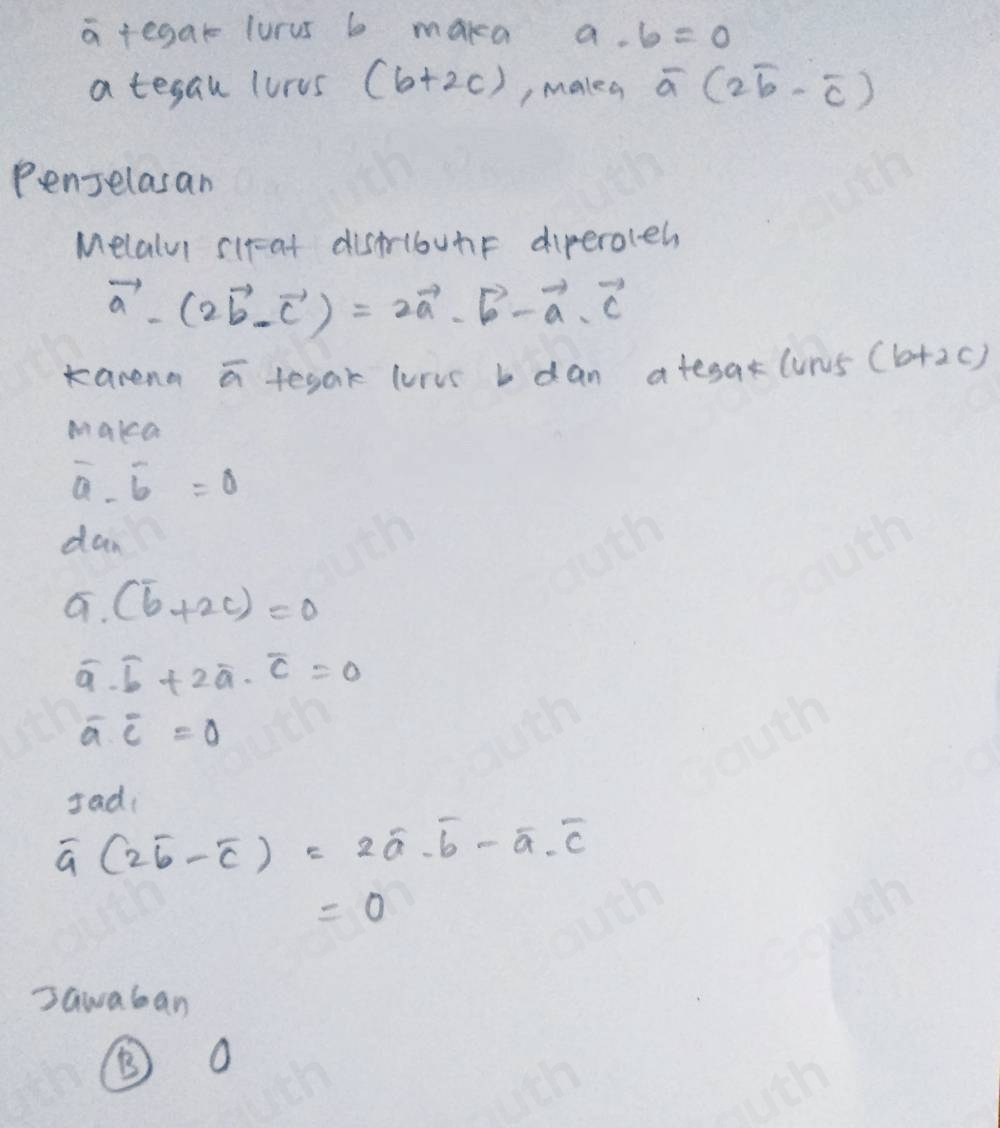 ā tegak lurus b maka a . b = 0
a tegak lurus (b+2c), maka ā (2b̄ - c̄)
Penjelasan
Melalui sifat distributif diperoleh
a⃗ . (2b⃗ - c⃗) = 2a⃗ . b⃗ - a⃗ . c⃗
karena ā tegak lurus b dan a tegak lurus (b+2c)
maka
ā . b̄ = 0
dan
ā . (b̄ + 2c) = 0
ā . b̄ + 2ā . c̄ = 0
ā . c̄ = 0
Jadi
ā (2b̄ - c̄) = 2ā . b̄ - ā . c̄
= 0
Jawaban
Ⓑ 0